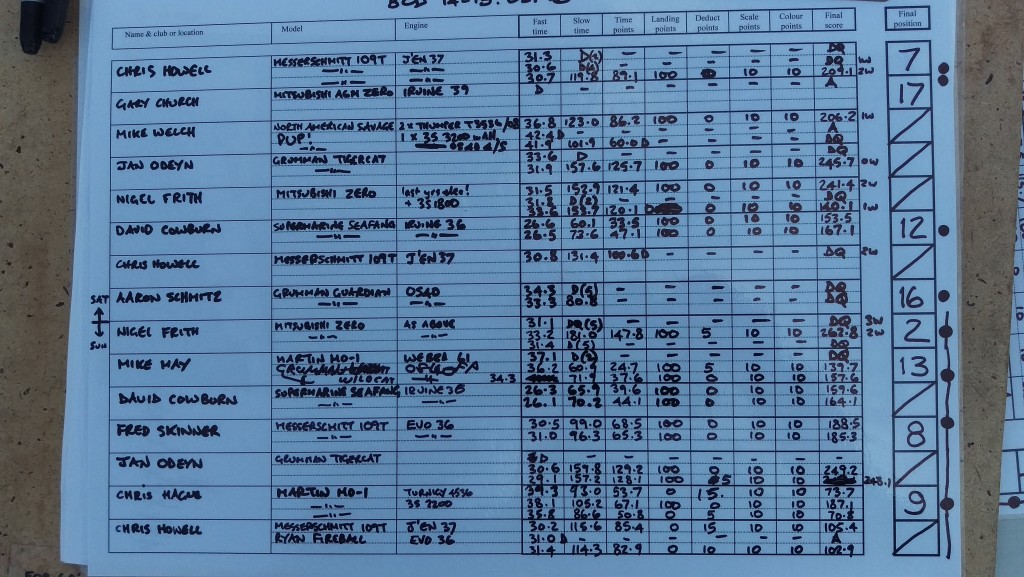 Name & club or location Model Engine Fast time Slow time Time points Landing points Deduct points Scale points Colour points Final score Final position
CHRIS HOWELL MESSERSCHMITT 109T J'EN 37 31.3 D(4) — — — — — DQ 7
—"— —"— 30.6 — — — — — DQ 1W
—"— —"— 30.7 119.8 89.1 100 0 10 10 209.1 2W
GARY CHURCH MITSUBISHI A6M ZERO IRVINE 39 D A 17
MIKE WELCH NORTH AMERICAN SAVAGE 2 x THUMPER T3536/08 36.8 123.0 86.2 100 0 10 10 206.2 1W
PUP! 1 x 35 3200 42.4 D — — — — — A
41.9 101.9 60.0 D — — — — DQ
JAN ODEYN GRUMMAN TIGERCAT 33.6 D — — — — — DQ
31.9 157.6 125.7 100 0 10 10 245.7 0W
NIGEL FRITH MITSUBISHI ZERO last yrs 31.5 152.9 121.4 100 0 10 10 241.4 2W
+ 35 1800 31.8 D(2) — — — — — DQ
33.6 153.7 120.1 0 10 10 140.1 1W
DAVID COWBURN SUPERMARINE SEAFANG IRVINE 36 26.6 60.1 33.5 100 0 10 10 153.5 12
—"— —"— 26.5 73.6 47.1 100 0 10 10 167.1
CHRIS HOWELL MESSERSCHMITT 109T J'EN 37 30.8 131.4 100.6 D — — — DQ 2W
SAT
AARON SCHMITZ GRUMMAN GUARDIAN OS40 34.3 D(5) — — — — — DQ 16
—"— —"— 33.3 80.8 — — — — — DQ
SUN
NIGEL FRITH MITSUBISHI ZERO AS ABOVE 31.1 DQ(5) — — — — — DQ 3W 2
—"— 33.2 181.0 147.8 100 5 10 10 262.8 2W
31.4 D(5) — — — — — DQ
MIKE MAY MARTIN MO-1 WEBRA 61 37.1 — — — — — DQ 13
36.2 60.9 24.7 100 5 10 10 139.7
WILDCAT —"— 34.3 71.9 37.6 100 0 10 10 157.6
DAVID COWBURN SUPERMARINE SEAFANG IRVINE 36 26.3 65.9 39.6 100 0 10 10 159.6
—"— —"— 26.1 70.2 44.1 100 0 10 10 164.1
FRED SKINNER MESSERSCHMITT 109T EVO 36 30.5 99.0 68.5 100 0 10 10 188.5 8
—"— —"— 31.0 96.3 65.3 100 0 10 10 185.3
JAN ODEYN GRUMMAN TIGERCAT D — — — — — —
30.6 159.8 129.2 100 0 10 10 249.2
29.1 157.2 128.1 100 5 10 10 243.1
CHRIS HAGUE MARTIN MO-1 TURNIGY 4536 39.3 93.0 53.7 0 15. 10 10 73.7 9
—"— 35 2200 38.1 105.2 67.1 100 0 10 10 187.1
—"— 35.8 86.6 50.8 0 5 10 10 70.8
CHRIS HOWELL MESSERSCHMITT 109T J'EN 37 30.2 115.6 85.4 0 15 10 10 105.4
RYAN FIREBALL EVO 36 31.0 D — — — — — A
31.4 114.3 82.9 0 10 10 10 102.9